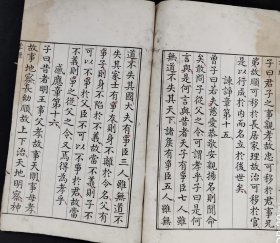 子曰君子之事親孝故忠可移於君事兄
弟故順可移於長居家理故治可移於官
是以行成於內而名立於後世矣
諫諍章第十五
曾子曰若夫慈愛恭敬安親揚名則聞命
矣敢問子從父之令可謂孝乎子曰是何
言與是何言與昔者天子有爭臣七人雖
無道不失其天下諸侯有爭臣五人雖無
道不失其國大夫有爭臣三人雖無道不
失其家士有爭友則身不離於令名父有
爭子則身不陷於不義故當不義則子不
可以不爭於父臣不可以不爭於君故當
不義則爭之從父之令又焉得為孝乎
感應章第十六
子曰昔者明王事父孝故事天明事母孝
故事地察長幼順故上下治天地明察神